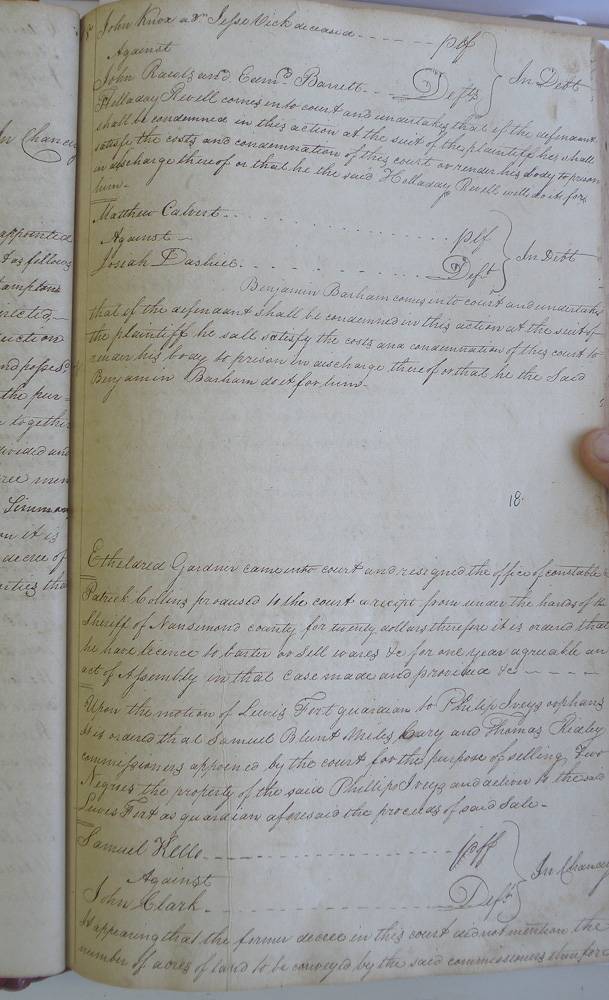 In Chancery
appointed
t as follows
ampton
rected
uction
nd possess'd
the pur-
together
divided and
ree men
Simmon
on it is
decree of
erties tha
John Knox adr Jesse Vick deceased plf
Against
John Rawls and Edmd Barrett Defts
In Debt
Holladay Revell comes into court and undertakes that if the defendant
shall be condemned in this action at the suit of the plaintiff he shall
satisfie the costs and condemnation of this court or render his body to prison
in discharge thereof or that he the said Holladay Revell will do it for
him
Matthew Calvert plf
Against
Josiah Dashiel Deft
In Debt
Benjamin Barham comes into court and undertakes
that if the defendant shall be condemned in this action at the suit of
the plaintiff he sall satisfy the costs and condemnation of this court to
render his body to prison in discharge thereof or that he the Said
Benjamin Barham do it for him
18.
Etheldred Gardner came into court and resigned the office of constable
Patrick Collins prodused to the court a recipt from under the hands of the
Sheriff of Nansemond county for twenty dollars therefore it is ordered that
he have licence to barter or sell wares &c for one year agreable an
act of Assembly in that case made and provided &c
Upon the motion of Lewis Fort guardian to Philip Iveys orphans
it is ordered that Samuel Blunt Miles Cary and Thomas Ridley
commissioners appoined by the court for the purpose of selling Two
Negroes the property of the said Phillips Iveys and to the said
Lewis Fort as guardian aforesaid the proceeds of said Sale
Samuel Kello plff
Against
John Clark Deft
In Chancery
It appearing that the former decree in this court did not mention the
number of acres of land to be conveyed by the said commissioners therefore